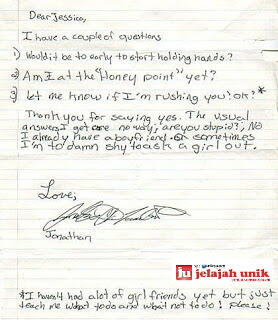 Dear Jessica,
I have a couple of questions
1) Would it be to early to start holding hands?
2) Am I at the "Honey point" yet?
3) Let me know if I'm rushing you! OK? *
Thank you for saying yes. The usual
answers I get are no way, are you stupid?, NO
I already have a boyfriend. Or sometimes
I'm to damn shy to ask a girl out.
Love,
Jonathan
ju jelajah unik
* I haven't had alot of girl friends yet but just
teach me what to do and what not to do! Please!